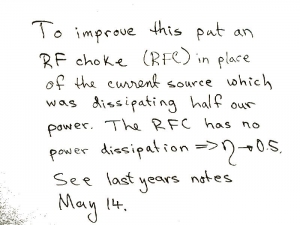 To improve this put an
RF choke (RFC) in place
of the current source which
was dissipating half our
power. The RFC has no
power dissipation => η → 0.5.
See last years notes
May 14.